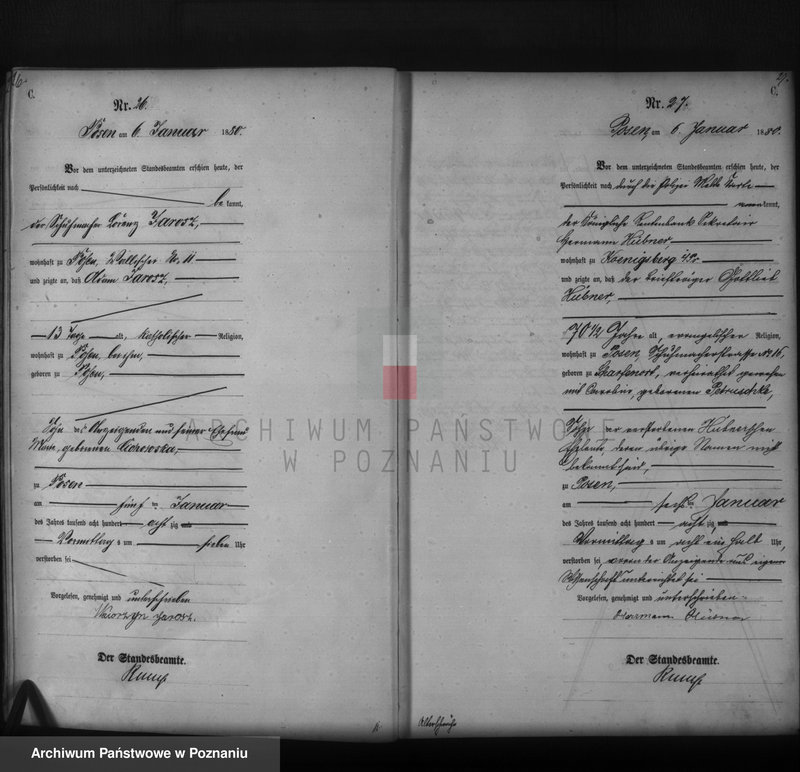 26
C.
Nr. 26.
Posen am 6. Januar 1880.
Vor dem unterzeichneten Standesbeamten erschien heute, der
Persönlichkeit nach
be kannt,
der Schuhmacher Lorenz Jarosz,
wohnhaft zu Posen, Wallischei No. 11
und zeigte an, daß Adam Jarosz,
13 Tage alt, katholischer Religion,
wohnhaft zu Posen,
geboren zu Posen,
Sohn des Anzeigenden und seiner Ehefrau
geborenen
zu Posen
am fünf ten Januar
des Jahres tausend acht hundert acht zig
Vormittag s um sieben Uhr
verstorben sei
Vorgelesen, genehmigt und unterschrieben
Wawrzyn Jarosz.
Der Standesbeamte.
27.
C.
Nr. 27.
Posen, am 6. Januar 1880.
Vor dem unterzeichneten Standesbeamten erschien heute, der
Persönlichkeit nach durch die Polizei Melde Karte
kannt,
der Königliche Rentenbank Sekretair
Hermann Hübner,
wohnhaft zu Koenigsberg
und zeigte an, daß der Briefträger Gottlieb
Hübner,
70 1/2 Jahre alt, evangelischer Religion,
wohnhaft zu Posen, Schuhmacherstrasse
geboren zu Scharfenort, verheirathet gewesen
mit Caroline, geborenen
Sohn der verstorbenen Hübnerschen
Eheleute, deren übrige Namen nicht
bekannt seien,
zu Posen,
am sechs ten Januar
des Jahres tausend acht hundert acht zig
Vormittag s um acht ein halb Uhr,
verstorben sei, wovon der Anzeigende aus eigener
Wissenschaft unterrichtet sei
Vorgelesen, genehmigt und unterschrieben
Herrmann Hübner
Der Standesbeamte.
ARCHIWUM PAŃSTWOWE
W POZNANIU
Archiwum Państwowe w Poznaniu